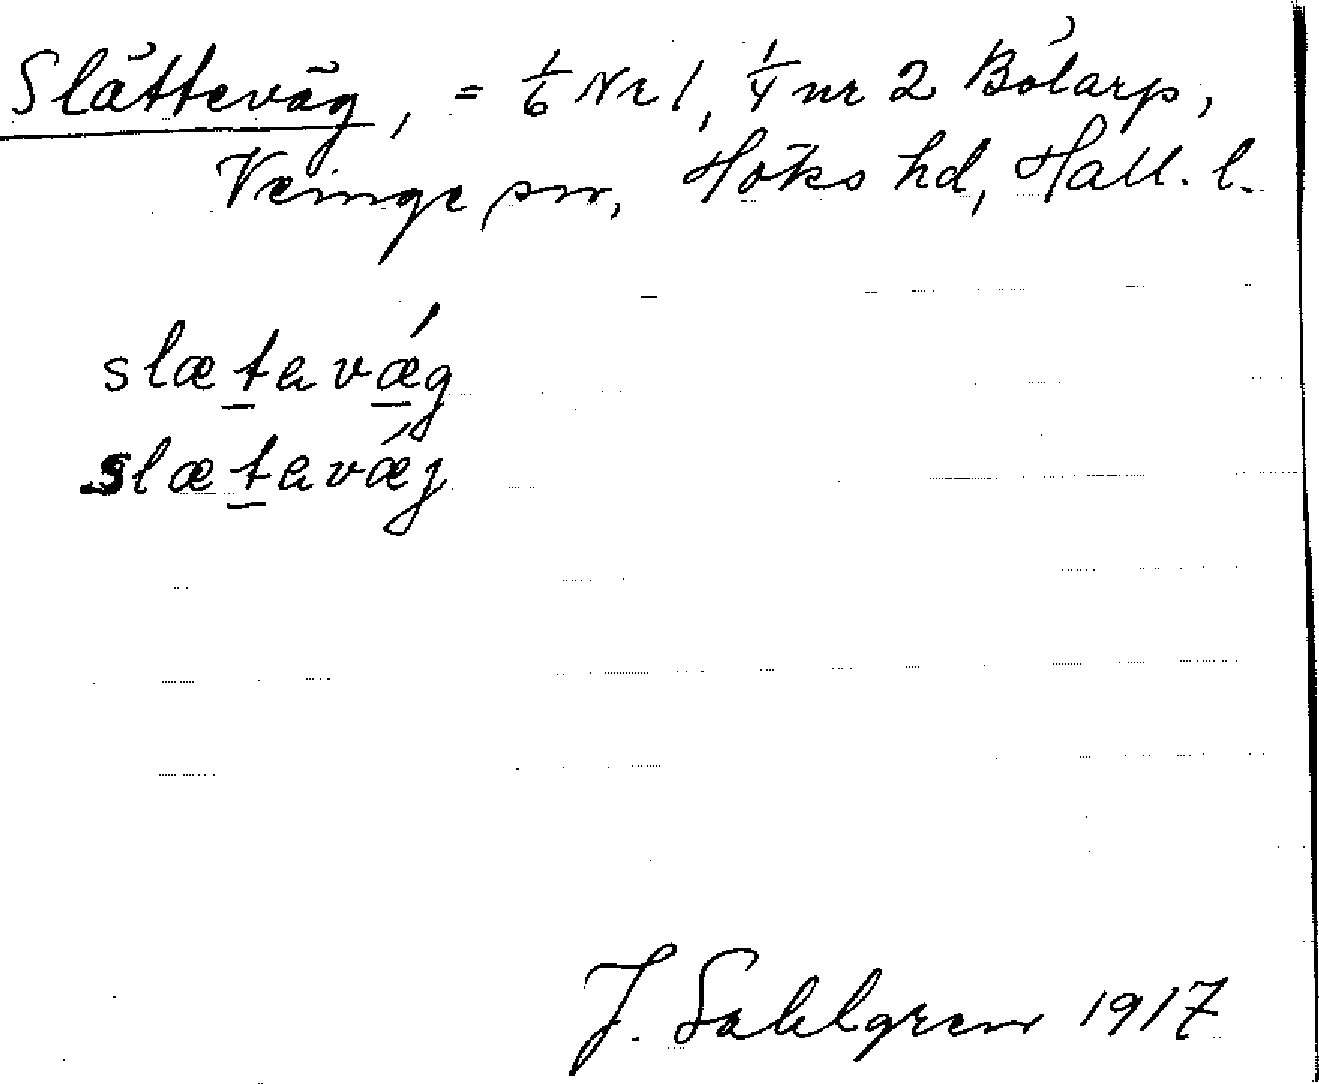 Slätteväg, = 1/6 Nr 1, 1/4 nr 2 Bölarp,
Veinge sn, Höks hd, Hall. l.
slætavǽg
slætavǽj
J. Sahlgren 1917